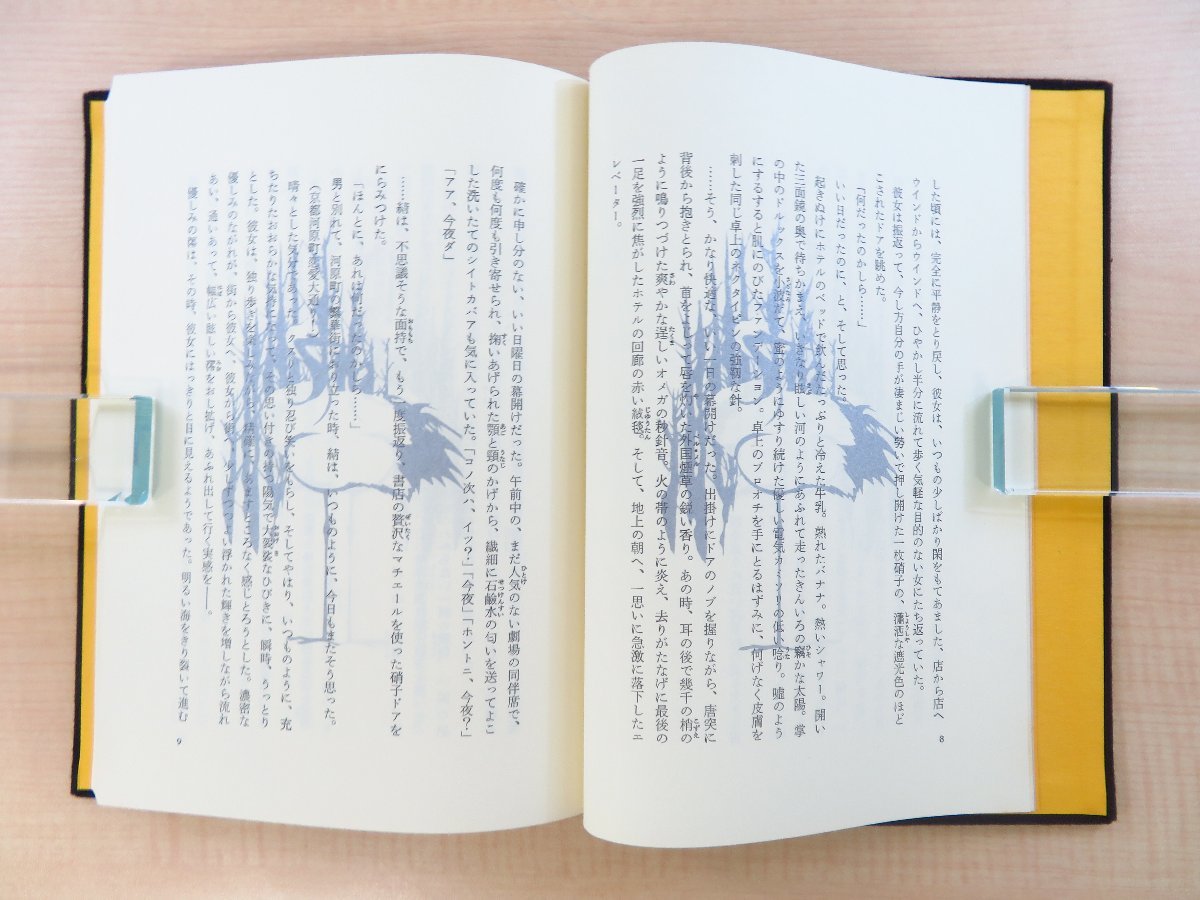 した頃には、完全に平静をとり戻し、彼女は、いつもの少しばかり閑をもてあました、店から店へ
ウインドからウインドへ、ひやかし半分に流れて歩く気軽な目的のない女にたち返っていた。
彼女は振返って、今し方自分の手が凄まじい勢いで押し開けた一枚硝子の、瀟洒な遮光色のほど
こされたドアを眺めた。
「何だったのかしら……」
いい日だったのに、と、そして思った。
起きぬけにホテルのベッドで飲んだたっぷりと冷えた牛乳。熟れたバナナ。熱いシャワー。開い
た三面鏡の奥で待ちかまえ、いきなり眩しい河のようにあふれて走ったきんいろの襞かな太陽。掌
の中のドルックスを小波だて、蜜のようにゆすり続けた優しい電気カミソリの低い唸り。嘘のよう
にするすると肌にのびたファンデーション。卓上のブロオチを手にとるはずみに、何げなく皮膚を
刺した同じ卓上のネクタイピンの強靭な針。
……そう、かなり快適な、いい一日の幕開けだった。出掛けにドアのノブを握りながら、唐突に
背後から抱きとられ、首をよじって唇を灼いた外国煙草の鋭い香り。あの時、耳の後で幾千の梢の
ように鳴りつづけた爽やかな逞しいオメガの秒針音。火の帯のように炎え、去りがたなげに最後の
一足を強烈に焦がしたホテルの回廊の赤い絨毯。そして、地上の朝へ、一思いに急激に落下したエ
レベーター。
8
確かに申し分のない、いい日曜日の幕開けだった。午前中の、まだ人気のない劇場の同伴席で、
何度も何度も引き寄せられ、掬いあげられた顎と頸のかげから、繊細に石鹼水の匂いを送ってよこ
した洗いたてのシイトカバアも気に入っていた。「コノ次ハ、イツ?」「今夜」「ホントニ、今夜?」
「アア、今夜ダ」
……綺は、不思議そうな面持で、もう一度振返り、書店の贅沢なマチエールを使った硝子ドアを
にらみつけた。
「ほんとに、あれは何だったのかしら……」
男と別れて、河原町の繁華街におり立った時、綺は、いつものように、今日もまたそう思った。
(京都河原町恋愛大通り!)
晴々とした気分であった。クスリと独り忍び笑いをもらし、そしてやはり、いつものように、充
ちたりたおおらかな気持になって、その思い付きの持つ陽気で大袈裟なひびきに、瞬時、うっとり
とした。彼女は、独り歩きを楽しみながら、精確に、あますところなく感じとろうとした。濃密な
優しみのながれが、街から彼女へ、彼女から街へ、少しずつつよい浮かれた輝きを増しながら流れ
あい、通いあって、幅広い眩しい澪をおし拡げ、あふれ出して行く実感を——。
優しみの傷は、その時、彼女にはっきりと目に見えるようであった。明るい海をきり裂いて進む
9